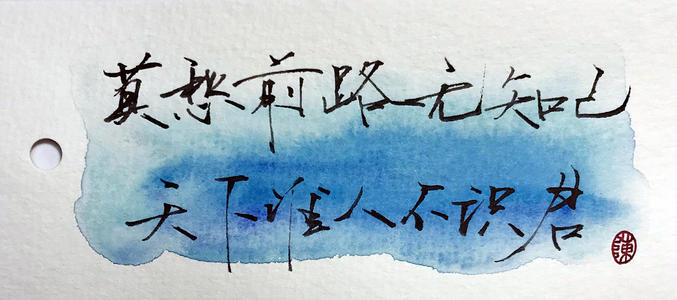 莫愁前路无知己
天下谁人不识君
陳